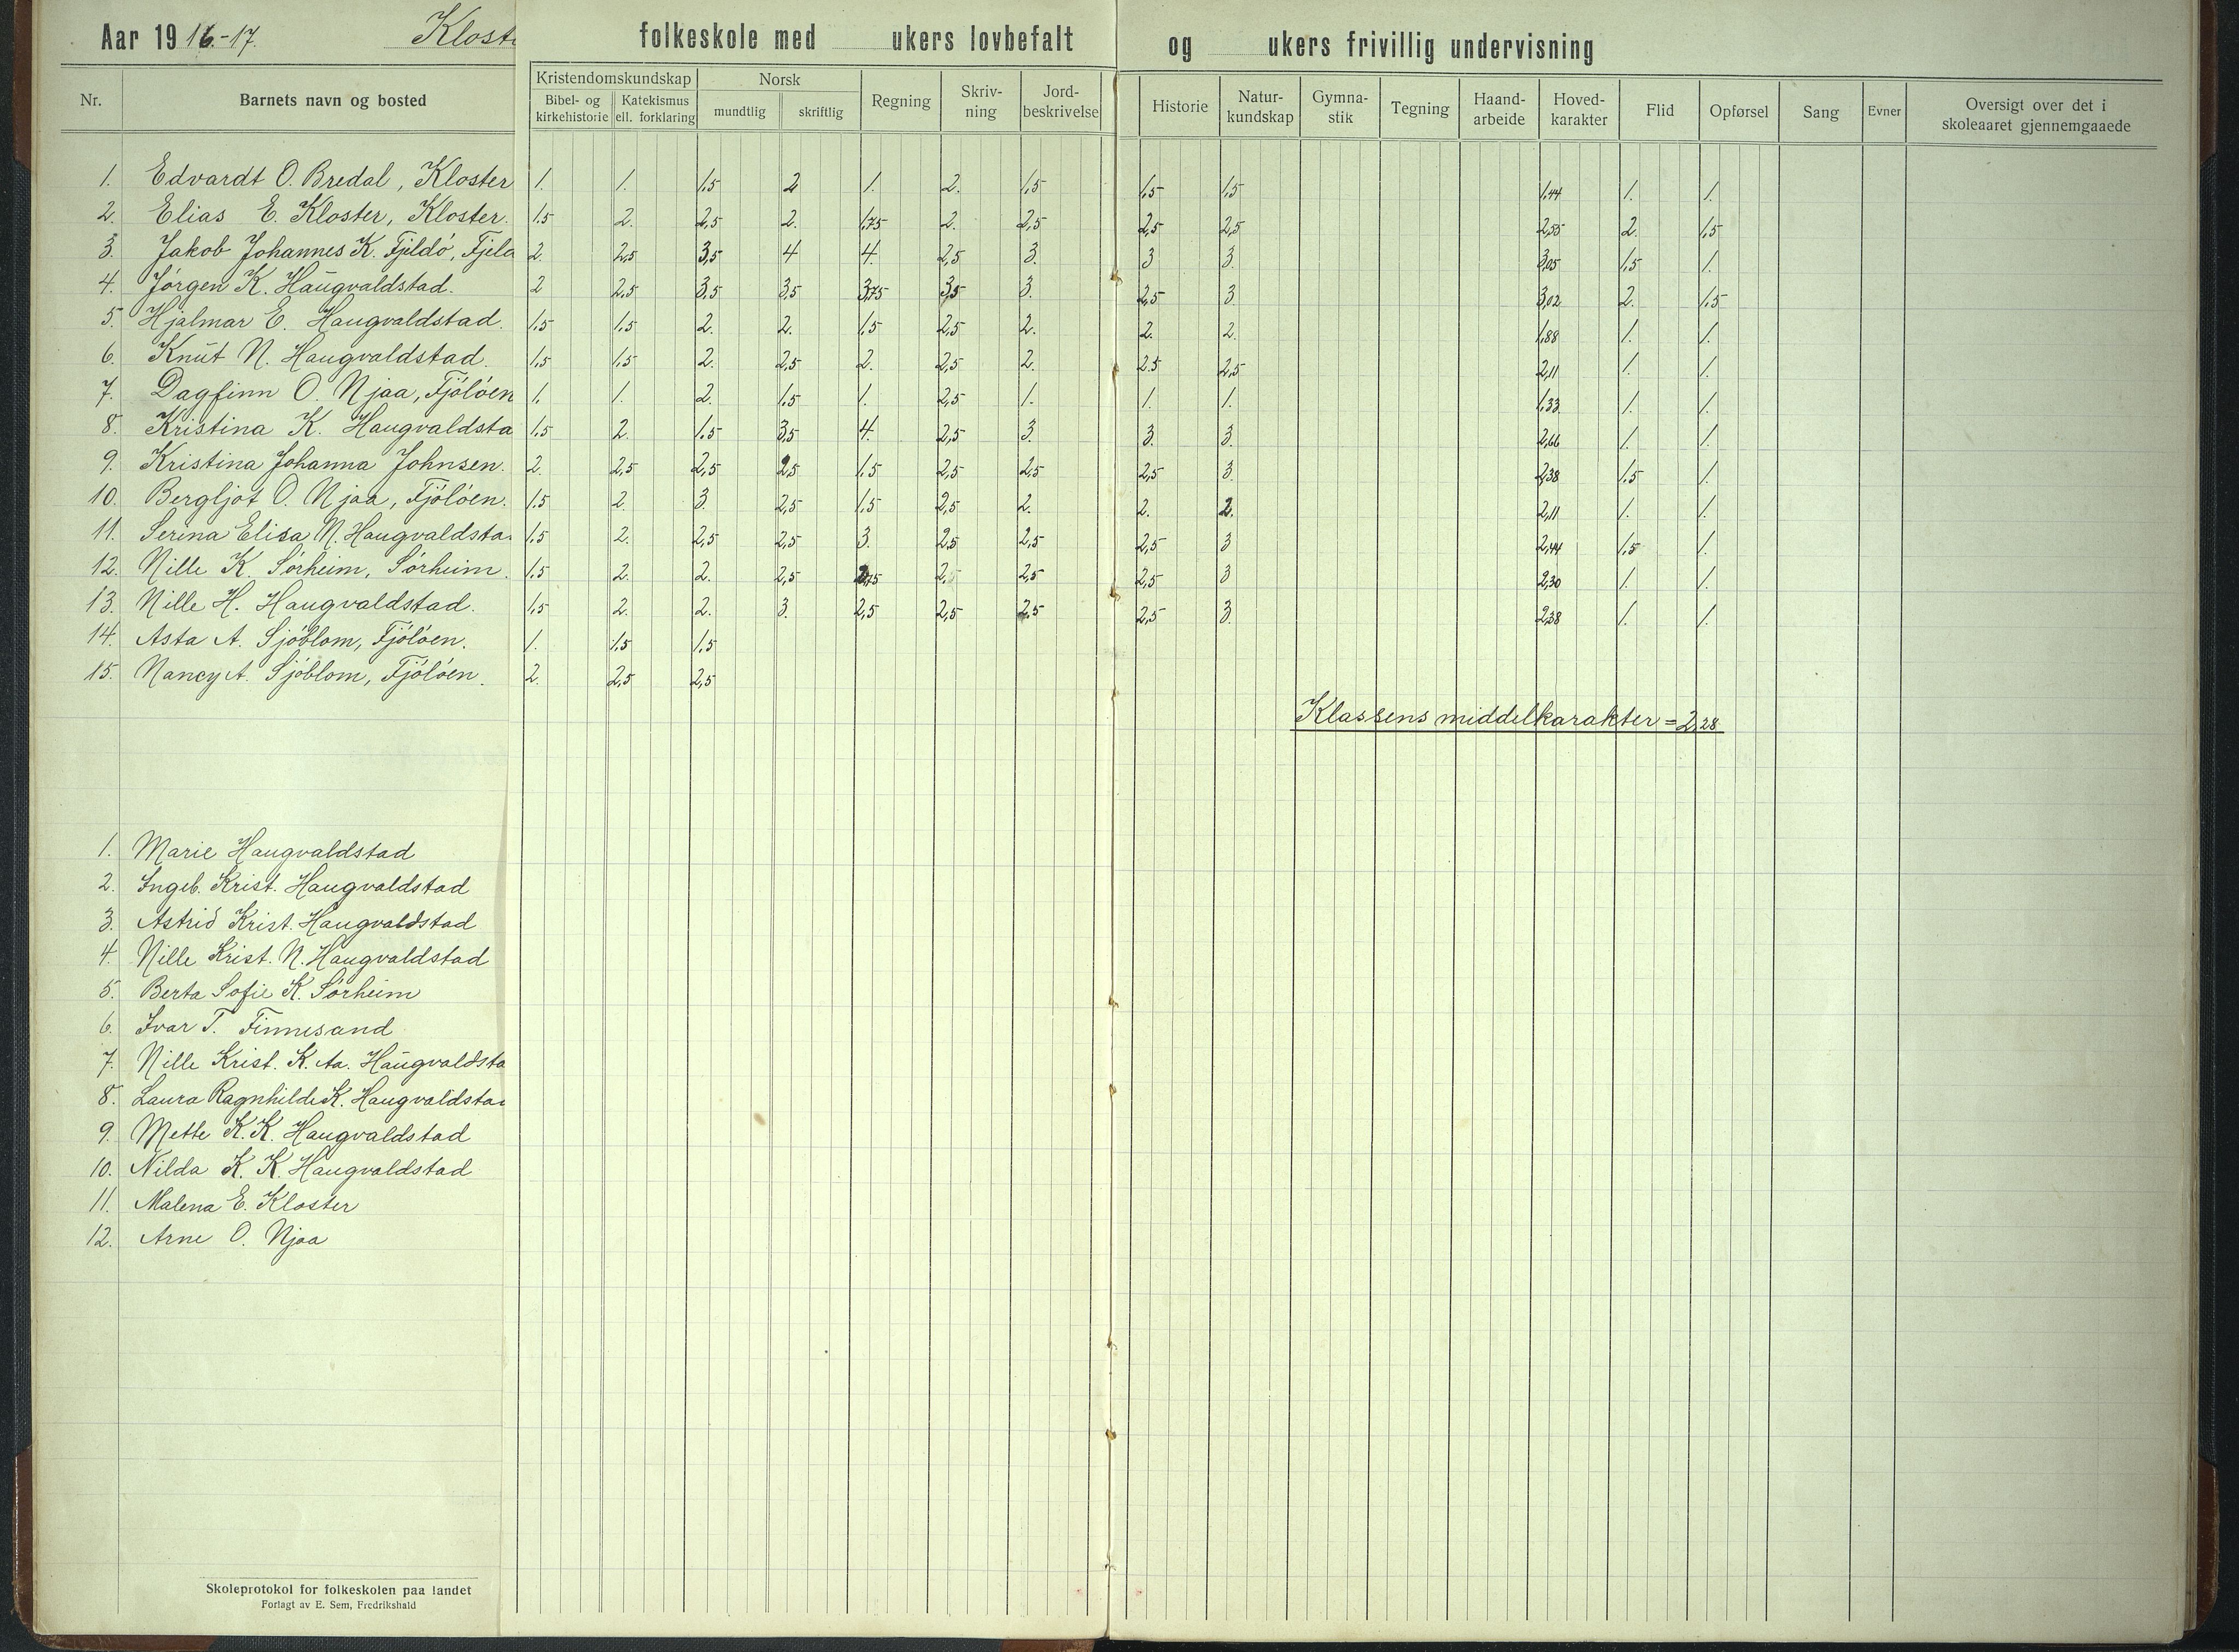 Aar 1916-17. Kloste folkeskole med ukers lovbefalt og ukers frivillig undervisning
Nr. Barnets navn og bosted Kristendomskundskap Bibel- og kirkehistorie Katekismus ell. forklaring Norsk mundtlig skriftlig Regning Skriv-ning Jord-beskrivelse Historie Natur-kundskap Gymna-stik Tegning Haand-arbeide Hoved-karakter Flid Opførsel Sang Evner Oversigt over det i skoleaaret gjennemgaaede
1. Edvardt O. Bredal, Kloster 1. 1. 1,5 2 1. 2. 1,5 1,5 1,5 1,44 1. 1.
2. Elias E. Kloster, Kloster. 1,5 2. 2,5 2. 1,75 2. 2,5 2,5 2,5 2,55 2. 1,5
3. Jakob Johannes K. Fjeldö, Fjeld 2. 2,5 3,5 4 4. 2,5 3. 3 3. 3,05 1,5 1.
4. Jörgen K. Haugvaldstad. 2 2,5 3,5 3,5 3,75 3,5 3. 2,5 3. 3,02 2. 1,5
5. Hjalmar E. Haugvaldstad. 1,5 1,5 2. 2. 1,5 2,5 2. 2. 2. 1,88 1. 1.
6. Knut N. Haugvaldstad. 1,5 1,5 2. 2,5 2. 2,5 2. 2,5 2,5 2,11 1. 1.
7. Dagfinn O. Njaa, Fjölöen 1. 1. 2. 1,5 1. 2,5 1. 1. 1. 1,33 1. 1.
8. Kristina K. Haugvaldsta 1,5 2. 1,5 3,5 4. 2,5 3. 3. 3. 2,66 1. 1.
9. Kristina Johanna Johnsen. 2. 2,5 2,5 2,5 1,5 2,5 2,5 2,5 3. 2,38 1,5 1.
10. Bergljot O. Njaa, Fjölöen. 1,5 2. 3. 2,5 1,5 2,5 2. 2. 2. 2,11 1. 1.
11. Serina Elisa N. Haugvaldsta 1,5 2. 2,5 2,5 3. 2,5 2,5 2,5 3 2,44 1,5 1.
12. Nille K. Sörheim, Sörheim. 1,5 2. 2. 2,5 2,5 2,5 2,5 3 2,30 1. 1.
13. Nille H. Haugvaldstad. 1,5 2. 2. 3. 2,5 2,5 2,5 2,5 3. 2,38 1. 1.
14. Asta A. Sjöblom, Fjölöen. 1. 1,5 1,5
15. Nancy A. Sjöblom, Fjölöen. 2. 2,5 2,5
Klassens middelkarakter = 2,28
1. Marie Haugvaldstad
2. Ingeb. Krist. Haugvaldstad
3. Astrid Krist. Haugvaldstad
4. Nille Krist. N. Haugvaldstad
5. Berta Sofie K. Sörheim
6. Ivar T. Finnesand
7. Nille Krist. K. Aa. Haugvaldsta
8. Laura Ragnhilde K. Haugvaldsta
9. Mette K. K. Haugvaldstad
10. Nilda K. K. Haugvaldstad
11. Malena E. Kloster
12. Arne O. Njaa
Skoleprotokol for folkeskolen paa landet
Forlagt av E. Sem, Fredrikshald